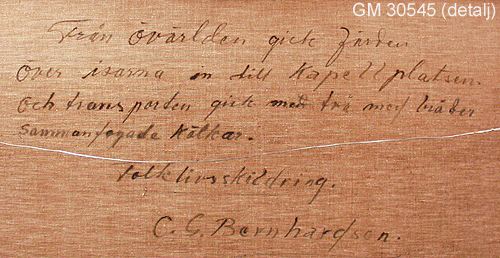 GM 30545 (detalj)
Från övärlden gick färden
över isarna in till Kapellplatsen.
och transporten gick med två med bräder
sammanfogade kälkar.
Folklivsskildring.
C. G. Bernhardson.